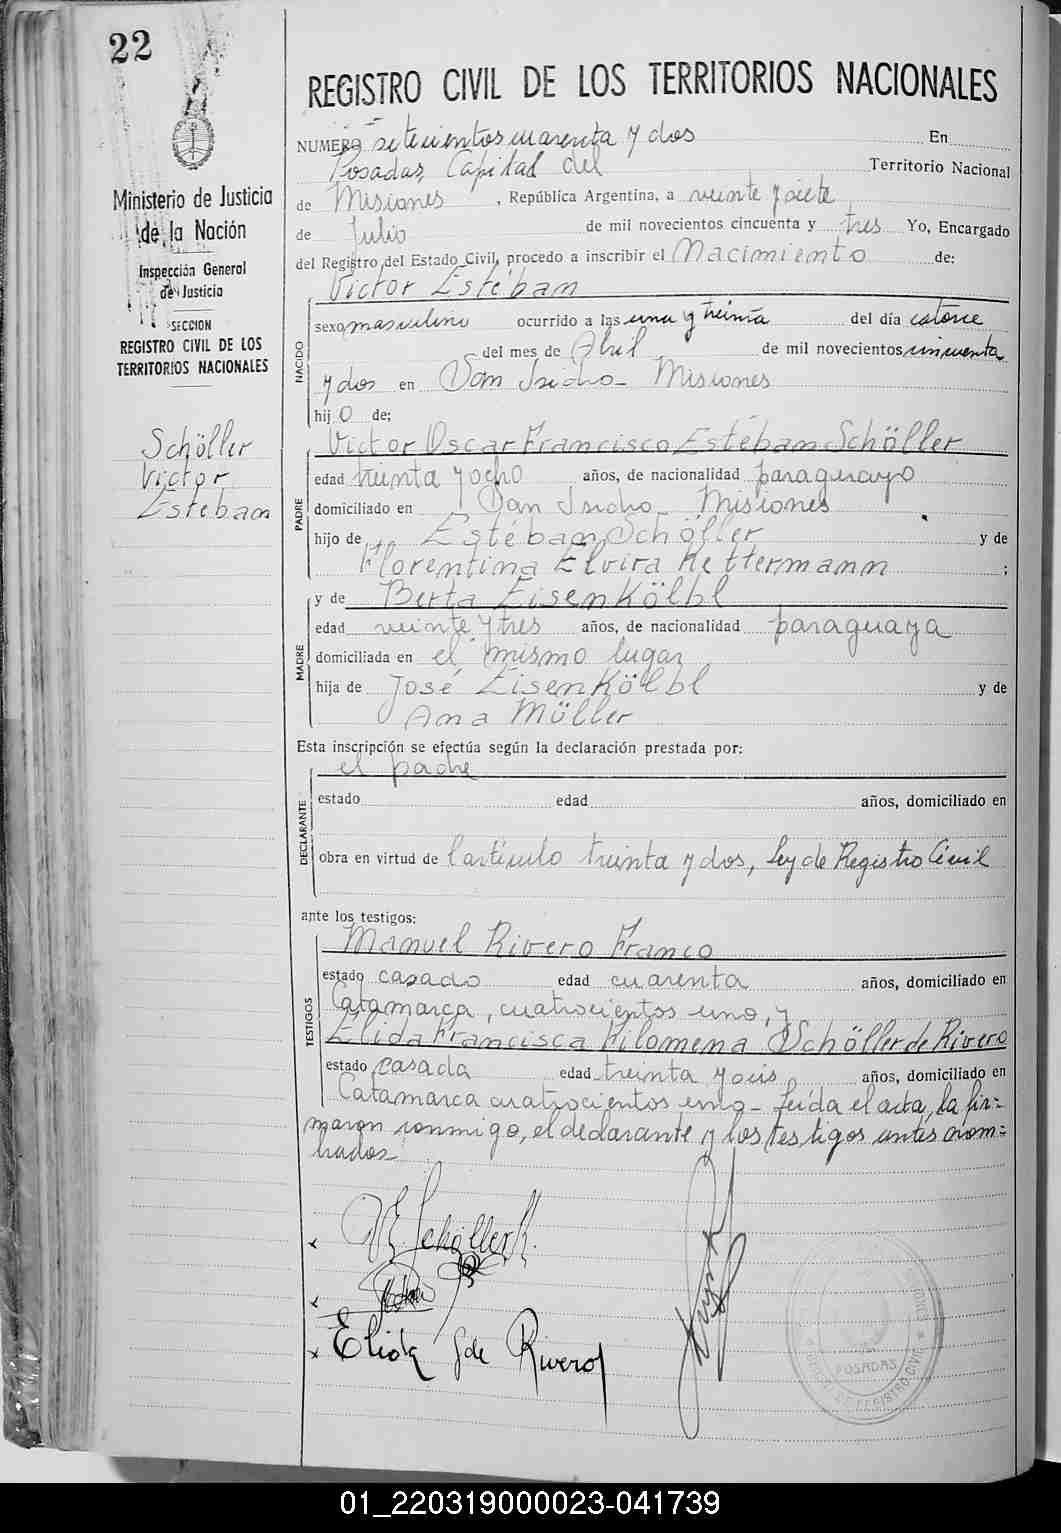 22
Ministerio de Justicia
de la Nación
Inspección General
de Justicia
SECCION
REGISTRO CIVIL DE LOS
TERRITORIOS NACIONALES
Schöller
Victor
Esteban
REGISTRO CIVIL DE LOS TERRITORIOS NACIONALES
NUMERO setecientos cuarenta y dos En
Posadas, Capital del Territorio Nacional
de Misiones, República Argentina, a veinte y siete
de Julio de mil novecientos cincuenta y tres Yo, Encargado
del Registro del Estado Civil, procedo a inscribir el Nacimiento de:
Victor Estéban
NACIDO
sexo masculino ocurrido a las una y treinta del día catorce
del mes de Abril de mil novecientos cincuenta
y dos en San Isidro - Misiones
hijo de;
PADRE
Victor Oscar Francisco Estéban Schöller
edad treinta y ocho años, de nacionalidad paraguayo
domiciliado en San Isidro - Misiones
hijo de Estéban Schöller y de
Florentina Elvira Kettermann ;
y de Berta Eisenkölbl
MADRE
edad veinte y tres años, de nacionalidad paraguaya
domiciliada en el mismo lugar
hija de José Eisenkölbl y de
Ana Möller
Esta inscripción se efectúa según la declaración prestada por:
el padre
DECLARANTE
estado edad años, domiciliado en
obra en virtud de l'artículo treinta y dos, ley de Registro Civil
ante los testigos:
Manuel Rivero Franco
TESTIGOS
estado casado edad cuarenta años, domiciliado en
Catamarca, cuatrocientos uno, y
Elida Francisca Filomena Schöller de Rivero
estado casada edad treinta y seis años, domiciliado en
Catamarca cuatrocientos uno - Leída el acta, la fir=
maron conmigo, el declarante y los testigos antes nom=
brados -
V E Schöller K.
Elida S de Rivero
POSADAS
01_220319000023-041739